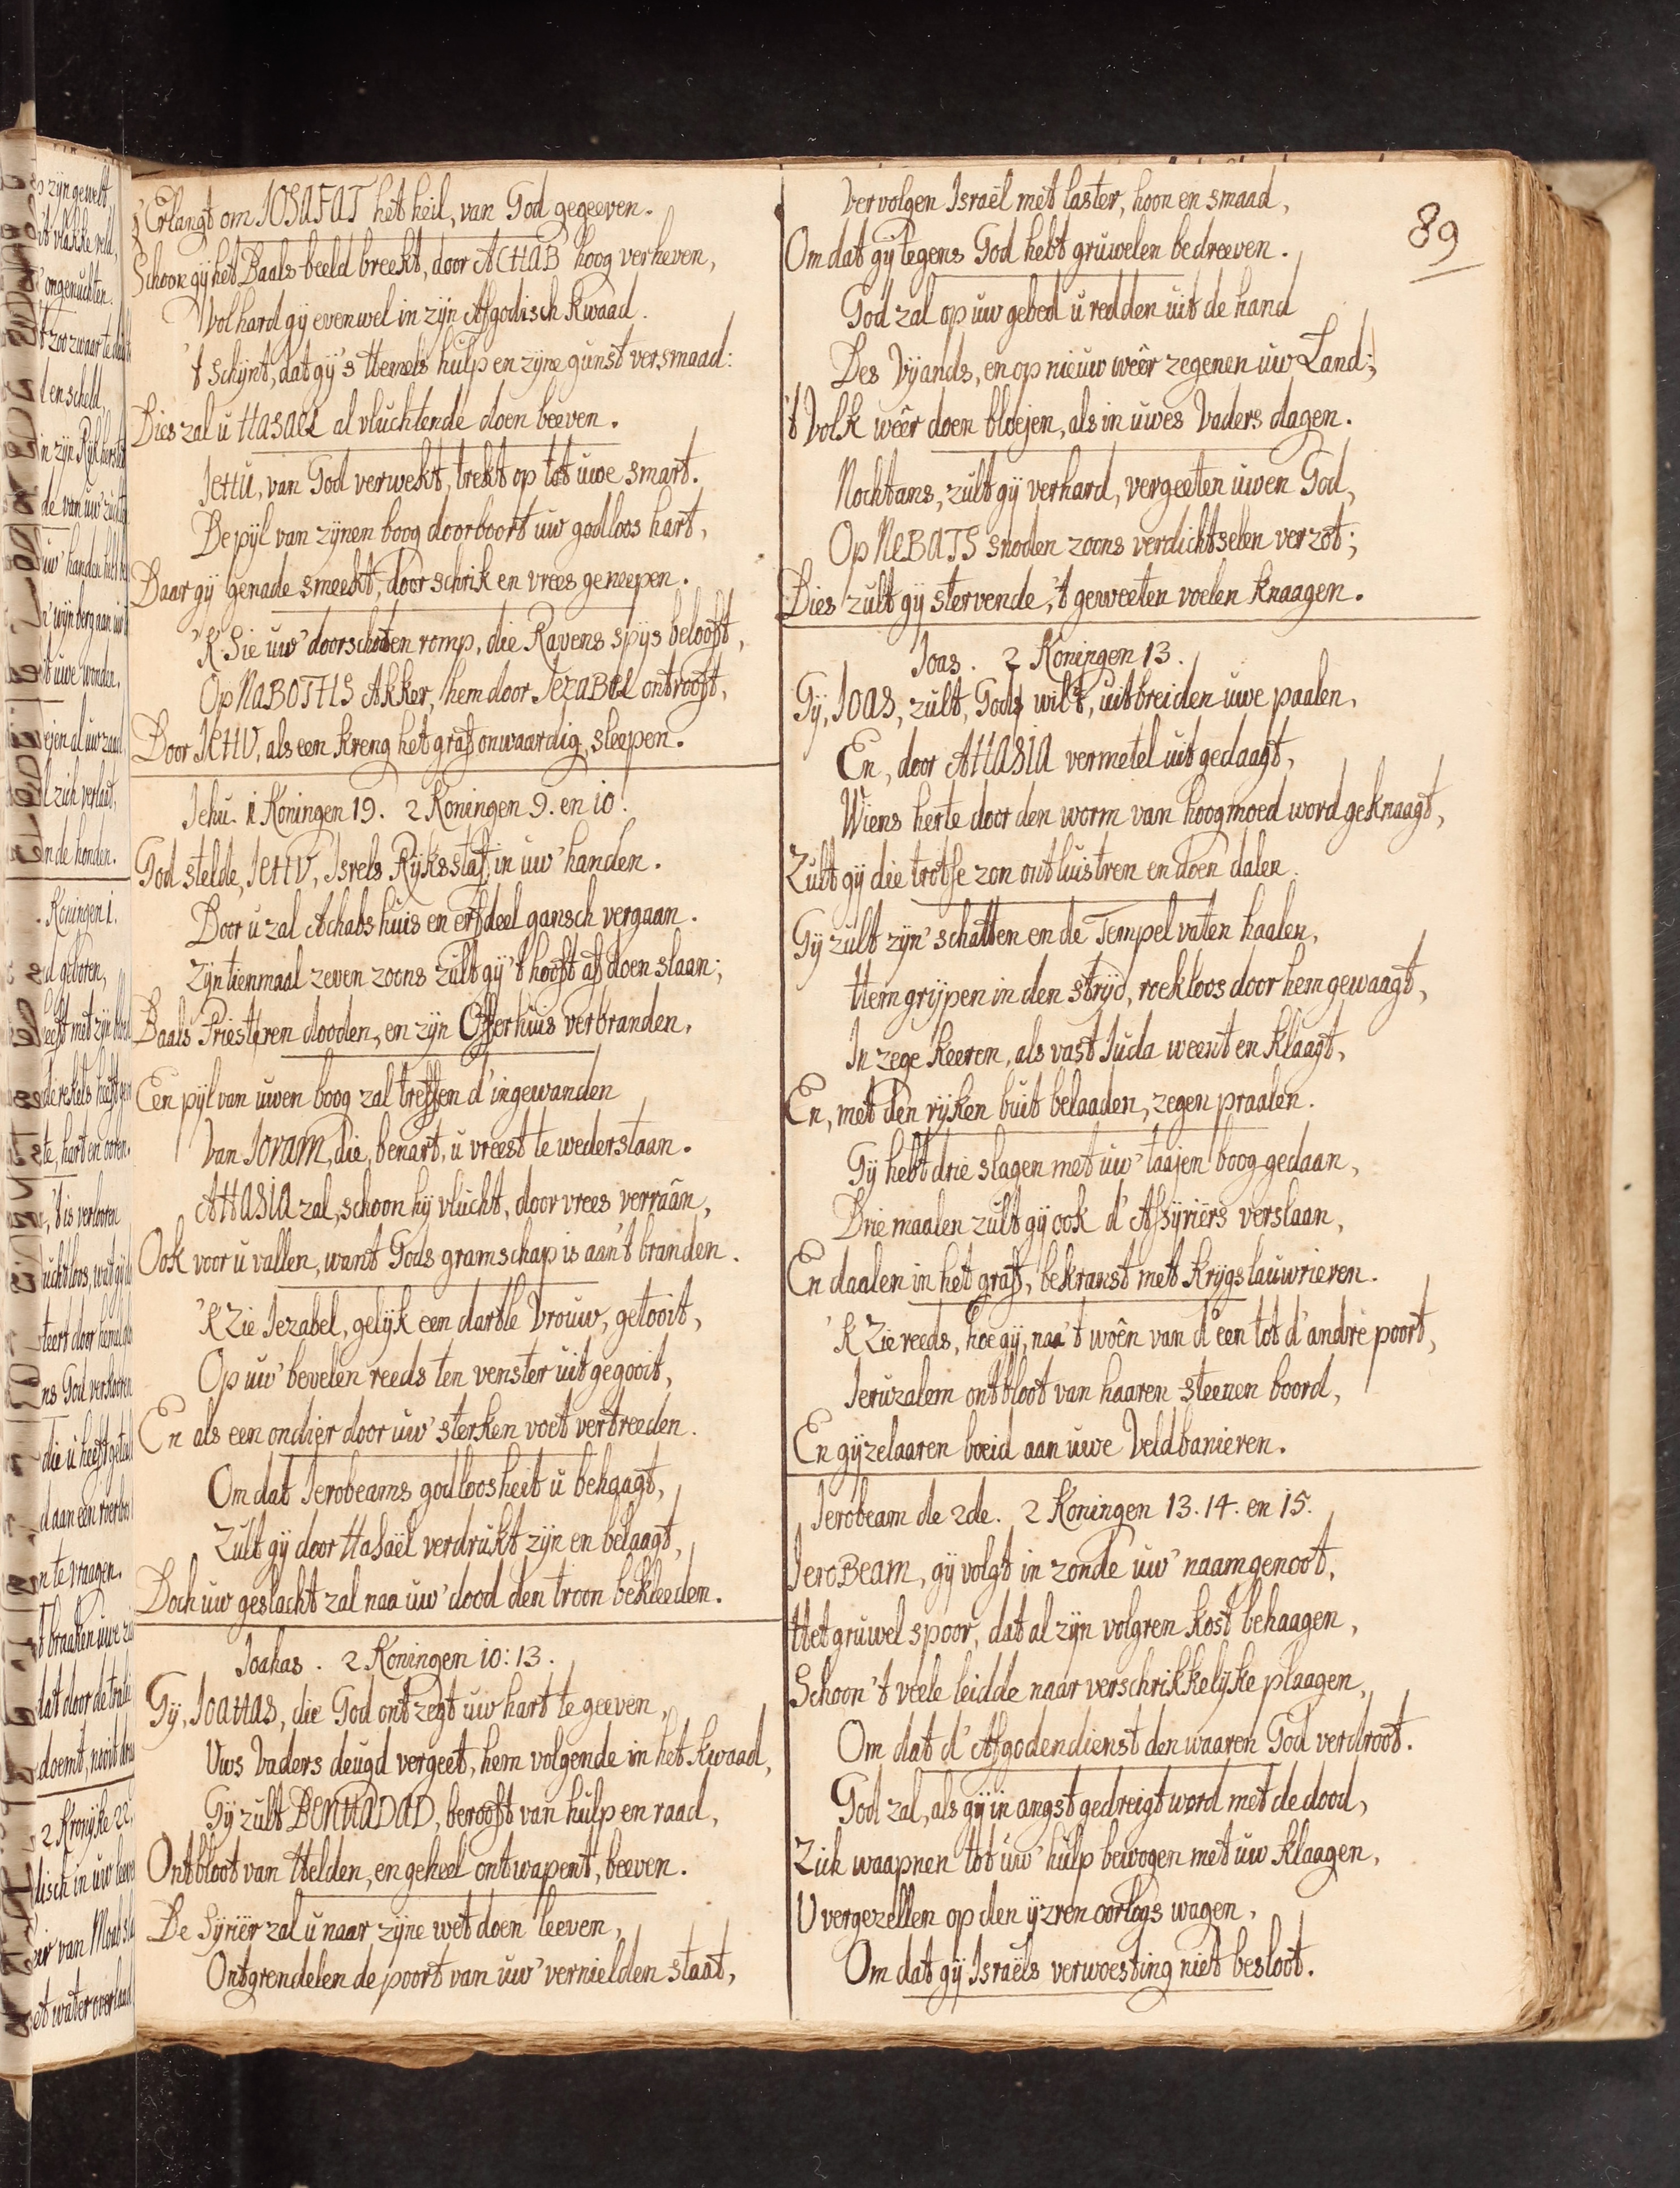 Erlangt om JOSAFAT het heil, van God gegeeven.
Schoon gij het Baals-beeld breekt, door ACHAB hoog verheven,
Volhard gij evenwel in zijn Afgodisch kwaad.
't Schijnt, dat gij 's Hemels hulp en zijne gunst versmaad:
Dies zal u HASAEL al vluchtende doen beeven.
JEHU, van God verwekt, trekt op tot uwe smart.
De pijl van zijnen boog doorboort uw godloos hart,
Daar gij genade smeekt, door schrik en vrees geneepen.
'K Sie uw' doorschoten romp, die Ravens spijs belooft,
Op NABOTHS Akker, hem door JEZABEL ontrooft,
Door JEHU, als een kreng het graf onwaardig, sleepen.
Jehu. 1 Koningen 19. 2 Koningen 9. en 10.
God stelde, JEHU, Isrels Rijksstaf in uw' handen.
Door u zal Achabs huis en erfdeel gansch vergaan.
Zijn tienmaal zeven zoons zult gij 't hooft af doen slaan;
Baals Priesteren dooden, en zijn Offerhuis verbranden,
Een pijl van uwen boog zal treffen d'ingewanden
Van JORAM, die, benart, u vreest te wederstaan.
AHASIA zal, schoon hij vlucht, door vrees verraân,
Ook voor u vallen, want Gods gramschap is aan 't branden.
'K Zie Jezabel, gelijk een dartle Vrouw, getooit,
Op uw' bevelen reeds ten venster uit gegooit,
En als een ondier door uw' sterken voet vertreeden.
Om dat Jerobeams godloosheit u behaagt,
Zult gij door Hasaël verdrukt zijn en belaagt,
Doch uw geslacht zal naa uw' dood den troon bekleeden.
Joahas. 2 Koningen 10: 13.
Gij, JOAHAS, die God ontzegt uw hart te geeven,
Uws Vaders deugd vergeet, hem volgende in het kwaad,
Gij zult BENHADAD, berooft van hulp en raad,
Ontbloot van Helden, en geheel ontwapent, beeven.
De Sijriër zal u naar zijne wet doen leeven,
Ontgrendelen de poort van uw' vernielden staat,
Vervolgen Israël met laster, hoon en smaad,
Om dat gij tegens God hebt gruwelen bedreeven.
God zal op uw gebed u redden uit de hand
Des Vijands, en op nieuw wêêr zegenen uw Land;
't Volk wêêr doen bloejen, als in uwes Vaders dagen.
Nochtans, zult gij verhard, vergeeten uwen God,
Op NEBATS snoden zoons verdichtselen verzot;
Dies zult gij stervende, 't geweeten voelen knaagen.
Joas. 2 Koningen 13.
Gij, JOAS, zult, Gods wilt, uitbreiden uwe paalen,
En, door AHASIA vermetel uit gedaagt,
Wiens herte door den worm van hoogmoed word geknaagt,
Zult gij die trotse zon ontluistren en doen dalen.
Gij zult zijn' schatten en de Tempel vaten haalen,
Hem grijpen in den strijd, roekloos door hem gewaagt,
In zege keeren, als vast Juda weent en klaagt,
En, met den rijken buit belaaden, zegen praalen.
Gij hebt drie slagen met uw' taajen boog gedaan,
Drie maalen zult gij ook d'Assijriërs verslaan,
En daalen in het graf, bekranst met krijgslauwrieren.
'K Zie reeds, hoe gij, naa 't woên van d'een tot d'andre poort,
Jeruzalem ontbloot van haaren steenen boord,
En gijzelaaren boeid aan uwe Veldbanieren.
Jerobeam de 2de. 2 Koningen 13. 14. en 15.
JEROBEAM, gij volgt in zonde uw' naamgenoot,
Het gruwel spoor, dat al zijn volgren kost behaagen,
Schoon 't veele leidde naar verschrikkelijke plaagen,
Om dat d'Afgodendienst den waaren God verdroot.
God zal, als gij in angst gedreigt word met de dood,
Zich waapnen tot uw' hulp bewogen met uw klaagen,
U vergezellen op den ijzren oorlogs wagen,
Om dat gij Israëls verwoesting niet besloot.
89